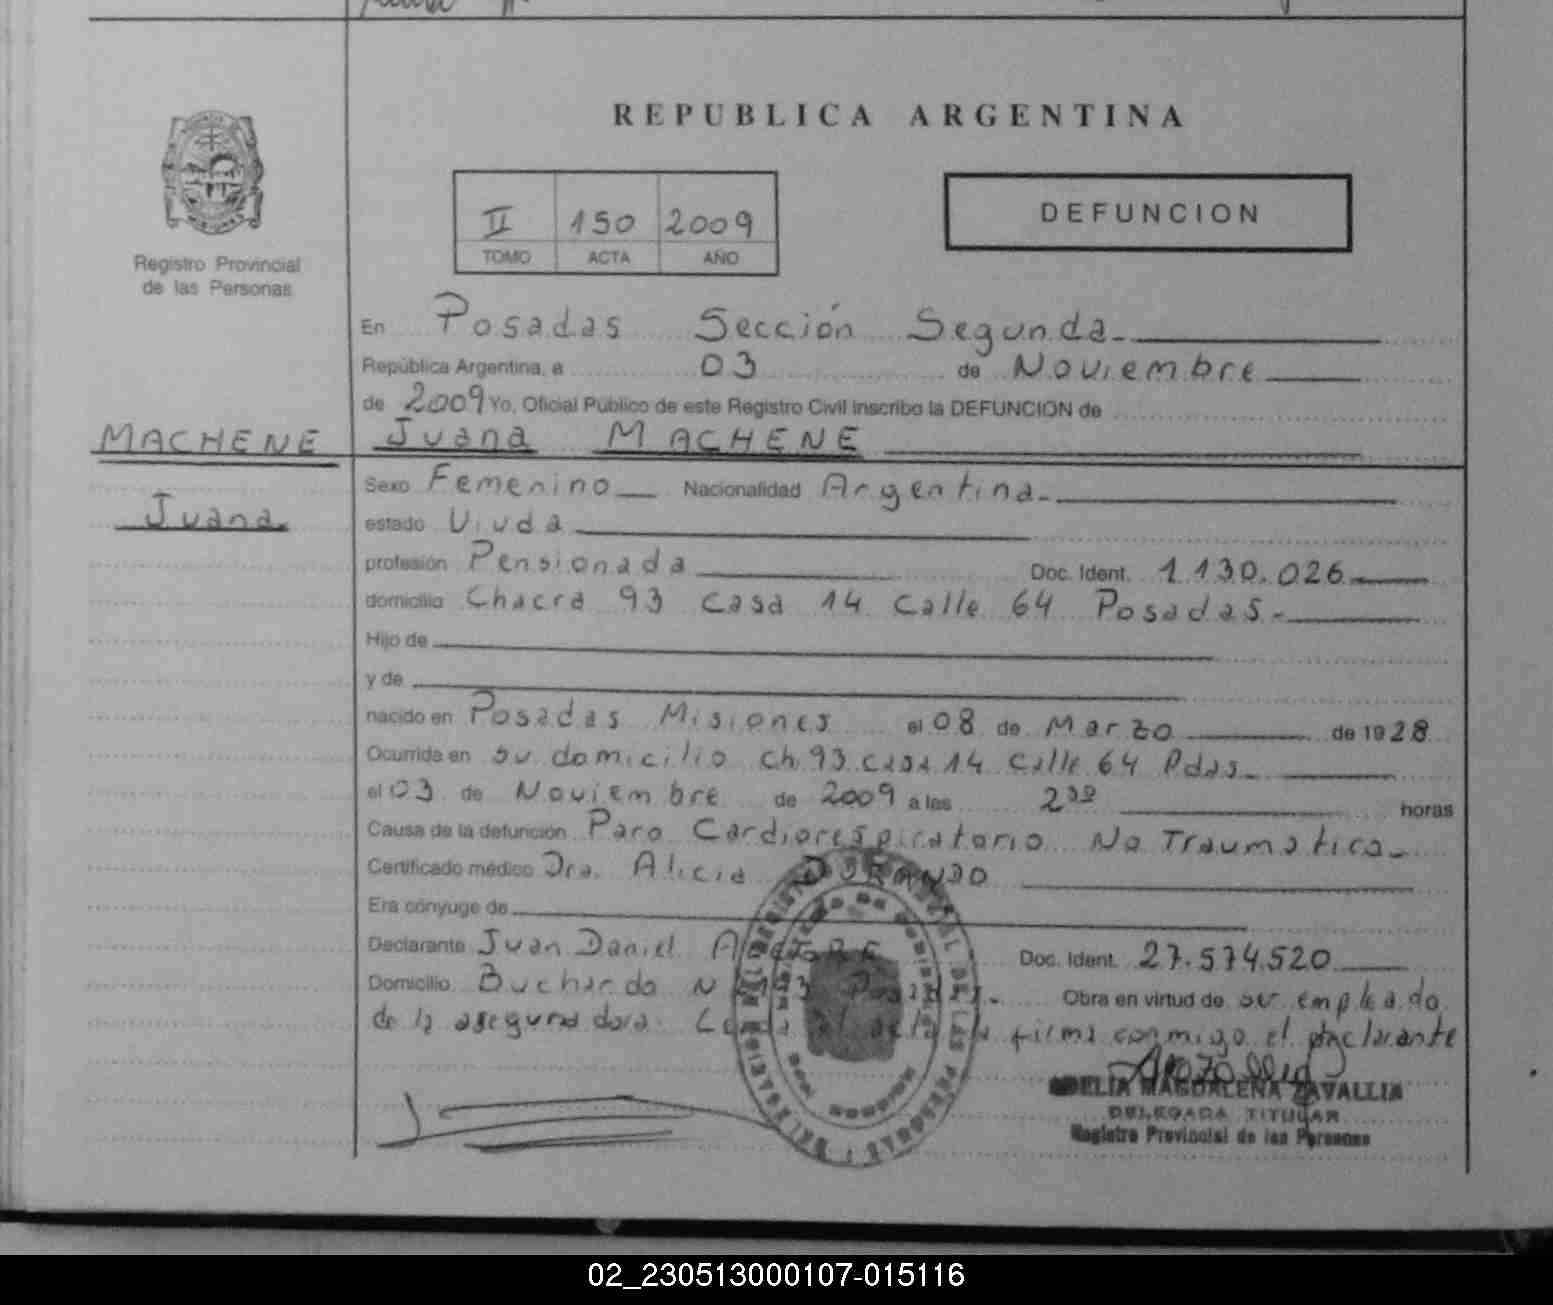 REPUBLICA ARGENTINA
Registro Provincial
de las Personas
II 150 2009
TOMO ACTA AÑO
DEFUNCION
En Posadas Sección Segunda
República Argentina, a 03 de Noviembre
de 2009 Yo, Oficial Público de este Registro Civil inscribo la DEFUNCION de
MACHENE Juana MACHENE
Juana
Sexo Femenino Nacionalidad Argentina
estado Viuda
profesión Pensionada Doc. Ident. 1.130.026
domicilio Chacra 93 casa 14 calle 64 Posadas.
Hijo de
y de
nacido en Posadas Misiones el 08 de Marzo de 1928
Ocurrida en su domicilio ch. 93 casa 14 calle 64 Pdas.
el 03 de Noviembre de 2009 a las 2 30 horas
Causa de la defunción Paro Cardiorespiratorio No Traumatico
Certificado médico Dra. Alicia DURANDO
Era cónyuge de
Declarante Juan Daniel Doc. Ident. 27.574.520
Domicilio Buchardo N Obra en virtud de ser empleado
de la aseguradora. firma conmigo el declarante
ADELIA MAGDALENA ZAVALLIA
DELEGADA TITULAR
Registro Provincial de las Personas
02_230513000107-015116